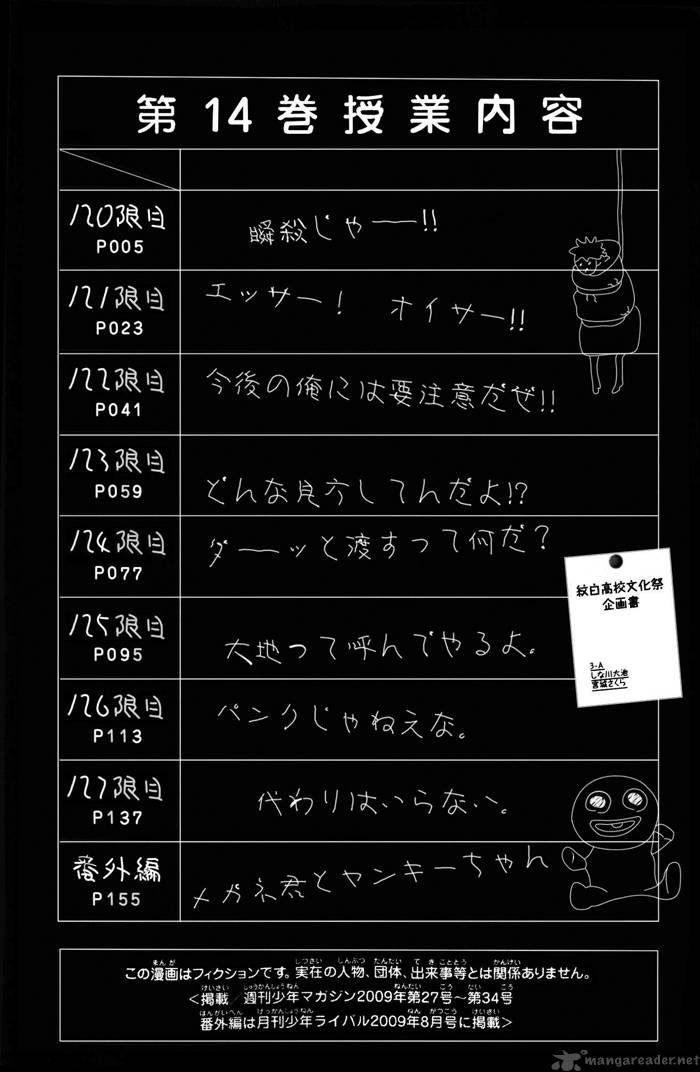 第14巻授業内容
120限目
P005
瞬殺じゃー―!!
121限目
P023
エッサー! オイサー!!
122限目
P041
今後の俺には要注意だぜ!!
123限目
P059
どんな見方してんだよ!?
124限目
P077
ダーーッと渡すって何だ?
紋白高校文化祭
企画書
3-A
しな川大地
宮城さくら
125限目
P095
大地って呼んでやるよ。
126限目
P113
パンクじゃねえな。
127限目
P137
代わりはいらない。
番外編
P155
メガネ君とヤンキーちゃん
この漫画はフィクションです。実在の人物、団体、出来事等とは関係ありません。
<掲載／週刊少年マガジン2009年第27号〜第34号
番外編は月刊少年ライバル2009年8月号に掲載>
mangareader.net